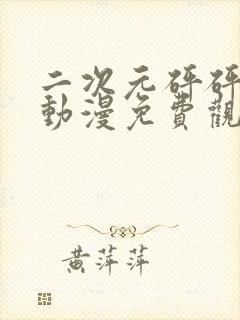 二次元砰砰
動漫免費觀
黃萍萍